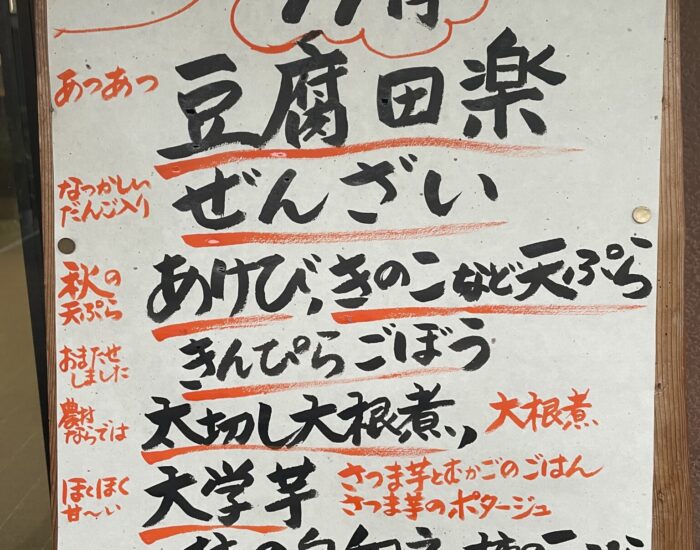 11月
あつあつ 豆腐田楽
なつかしい
だんご入り ぜんざい
秋の
天ぷら あけび,きのこなど天ぷら
おまたせ
しました きんぴらごぼう
農村
ならでは 太切し大根煮, 大根煮
ほくほく
甘〜い 大学芋 さつま芋とむかごのごはん
さつま芋のポタージュ